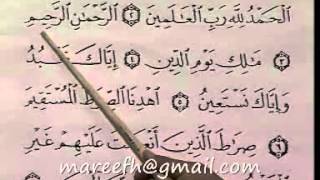 الْحَمْدُ لِلَّهِ رَبِّ الْعَٰلَمِينَ ٢ الرَّحْمَٰنِ الرَّحِيمِ
٣ مَٰلِكِ يَوْمِ الدِّينِ ٤ إِيَّاكَ نَعْبُدُ
وَإِيَّاكَ نَسْتَعِينُ ٥ اهْدِنَا الصِّرَٰطَ الْمُسْتَقِيمَ
٦ صِرَٰطَ الَّذِينَ أَنْعَمْتَ عَلَيْهِمْ غَيْرِ
mareefh@gmail.com